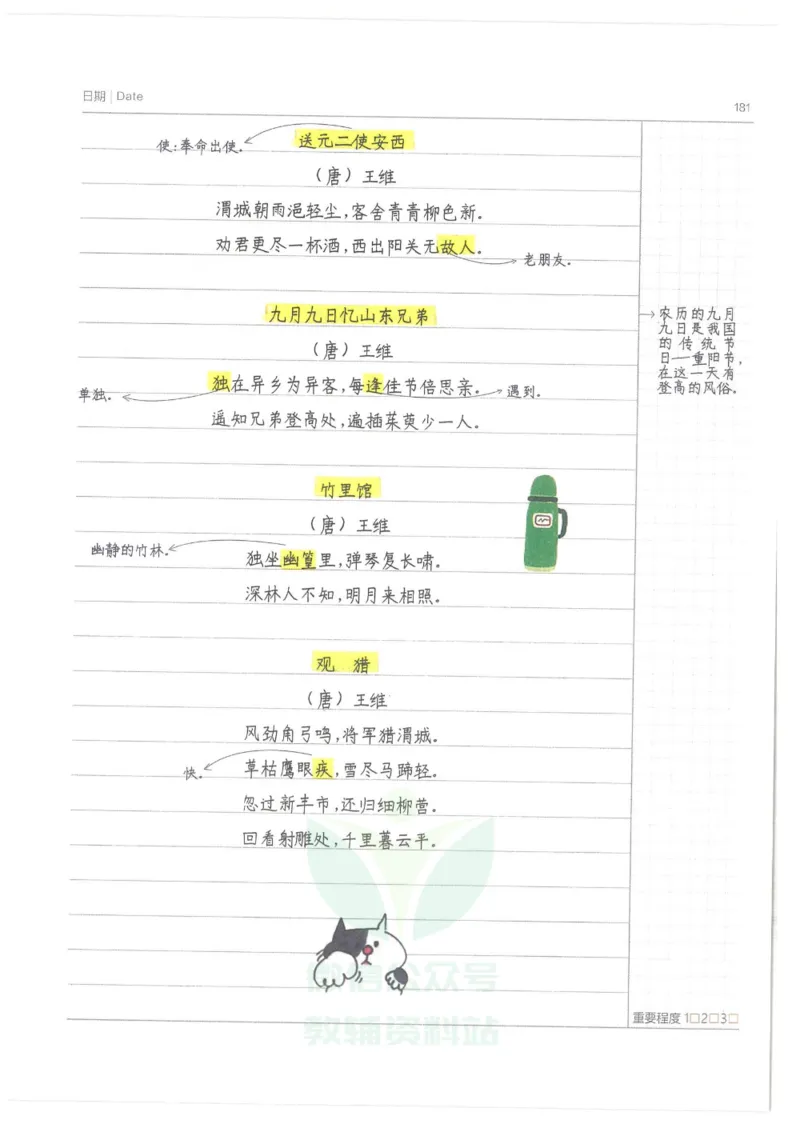 日期 | Date
181
送元二使安西
使:奉命出使。
（唐）王维
渭城朝雨浥轻尘,客舍青青柳色新。
劝君更尽一杯酒,西出阳关无故人。
老朋友。
九月九日忆山东兄弟
农历的九月
九日是我国
的传统节
日—重阳节,
在这一天有
登高的风俗。
（唐）王维
独在异乡为异客,每逢佳节倍思亲。
单独。
遇到.
遥知兄弟登高处,遍插茱萸少一人。
竹里馆
（唐）王维
幽静的竹林。
独坐幽篁里,弹琴复长啸。
深林人不知,明月来相照。
观 猎
（唐）王维
风劲角弓鸣,将军猎渭城。
快。
草枯鹰眼疾,雪尽马蹄轻。
忽过新丰市,还归细柳营。
回看射雕处,千里暮云平。
微信公众号
教辅资料站
重要程度 1□2□3□